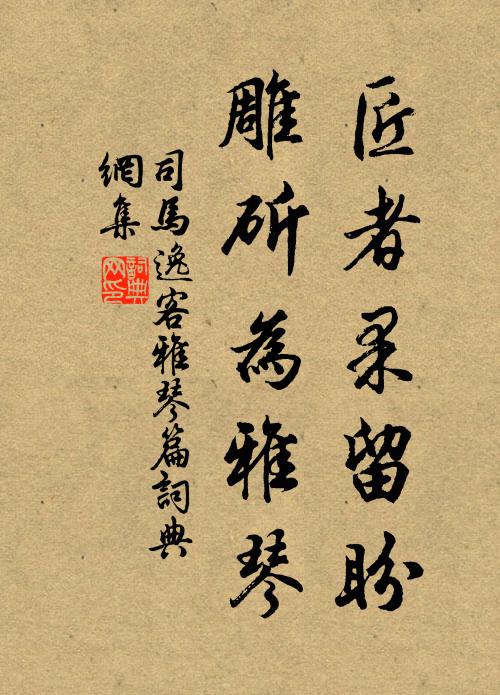 匠者果留盼
雕斫為雅琴
司馬逸客雅琴篇詞典
網集
詞典
网印